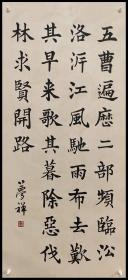 五曹遍歷二部頻臨松
洛沂江風馳雨布去歎
其早来歌其暮除惡伐
林求賢開路
夢祥